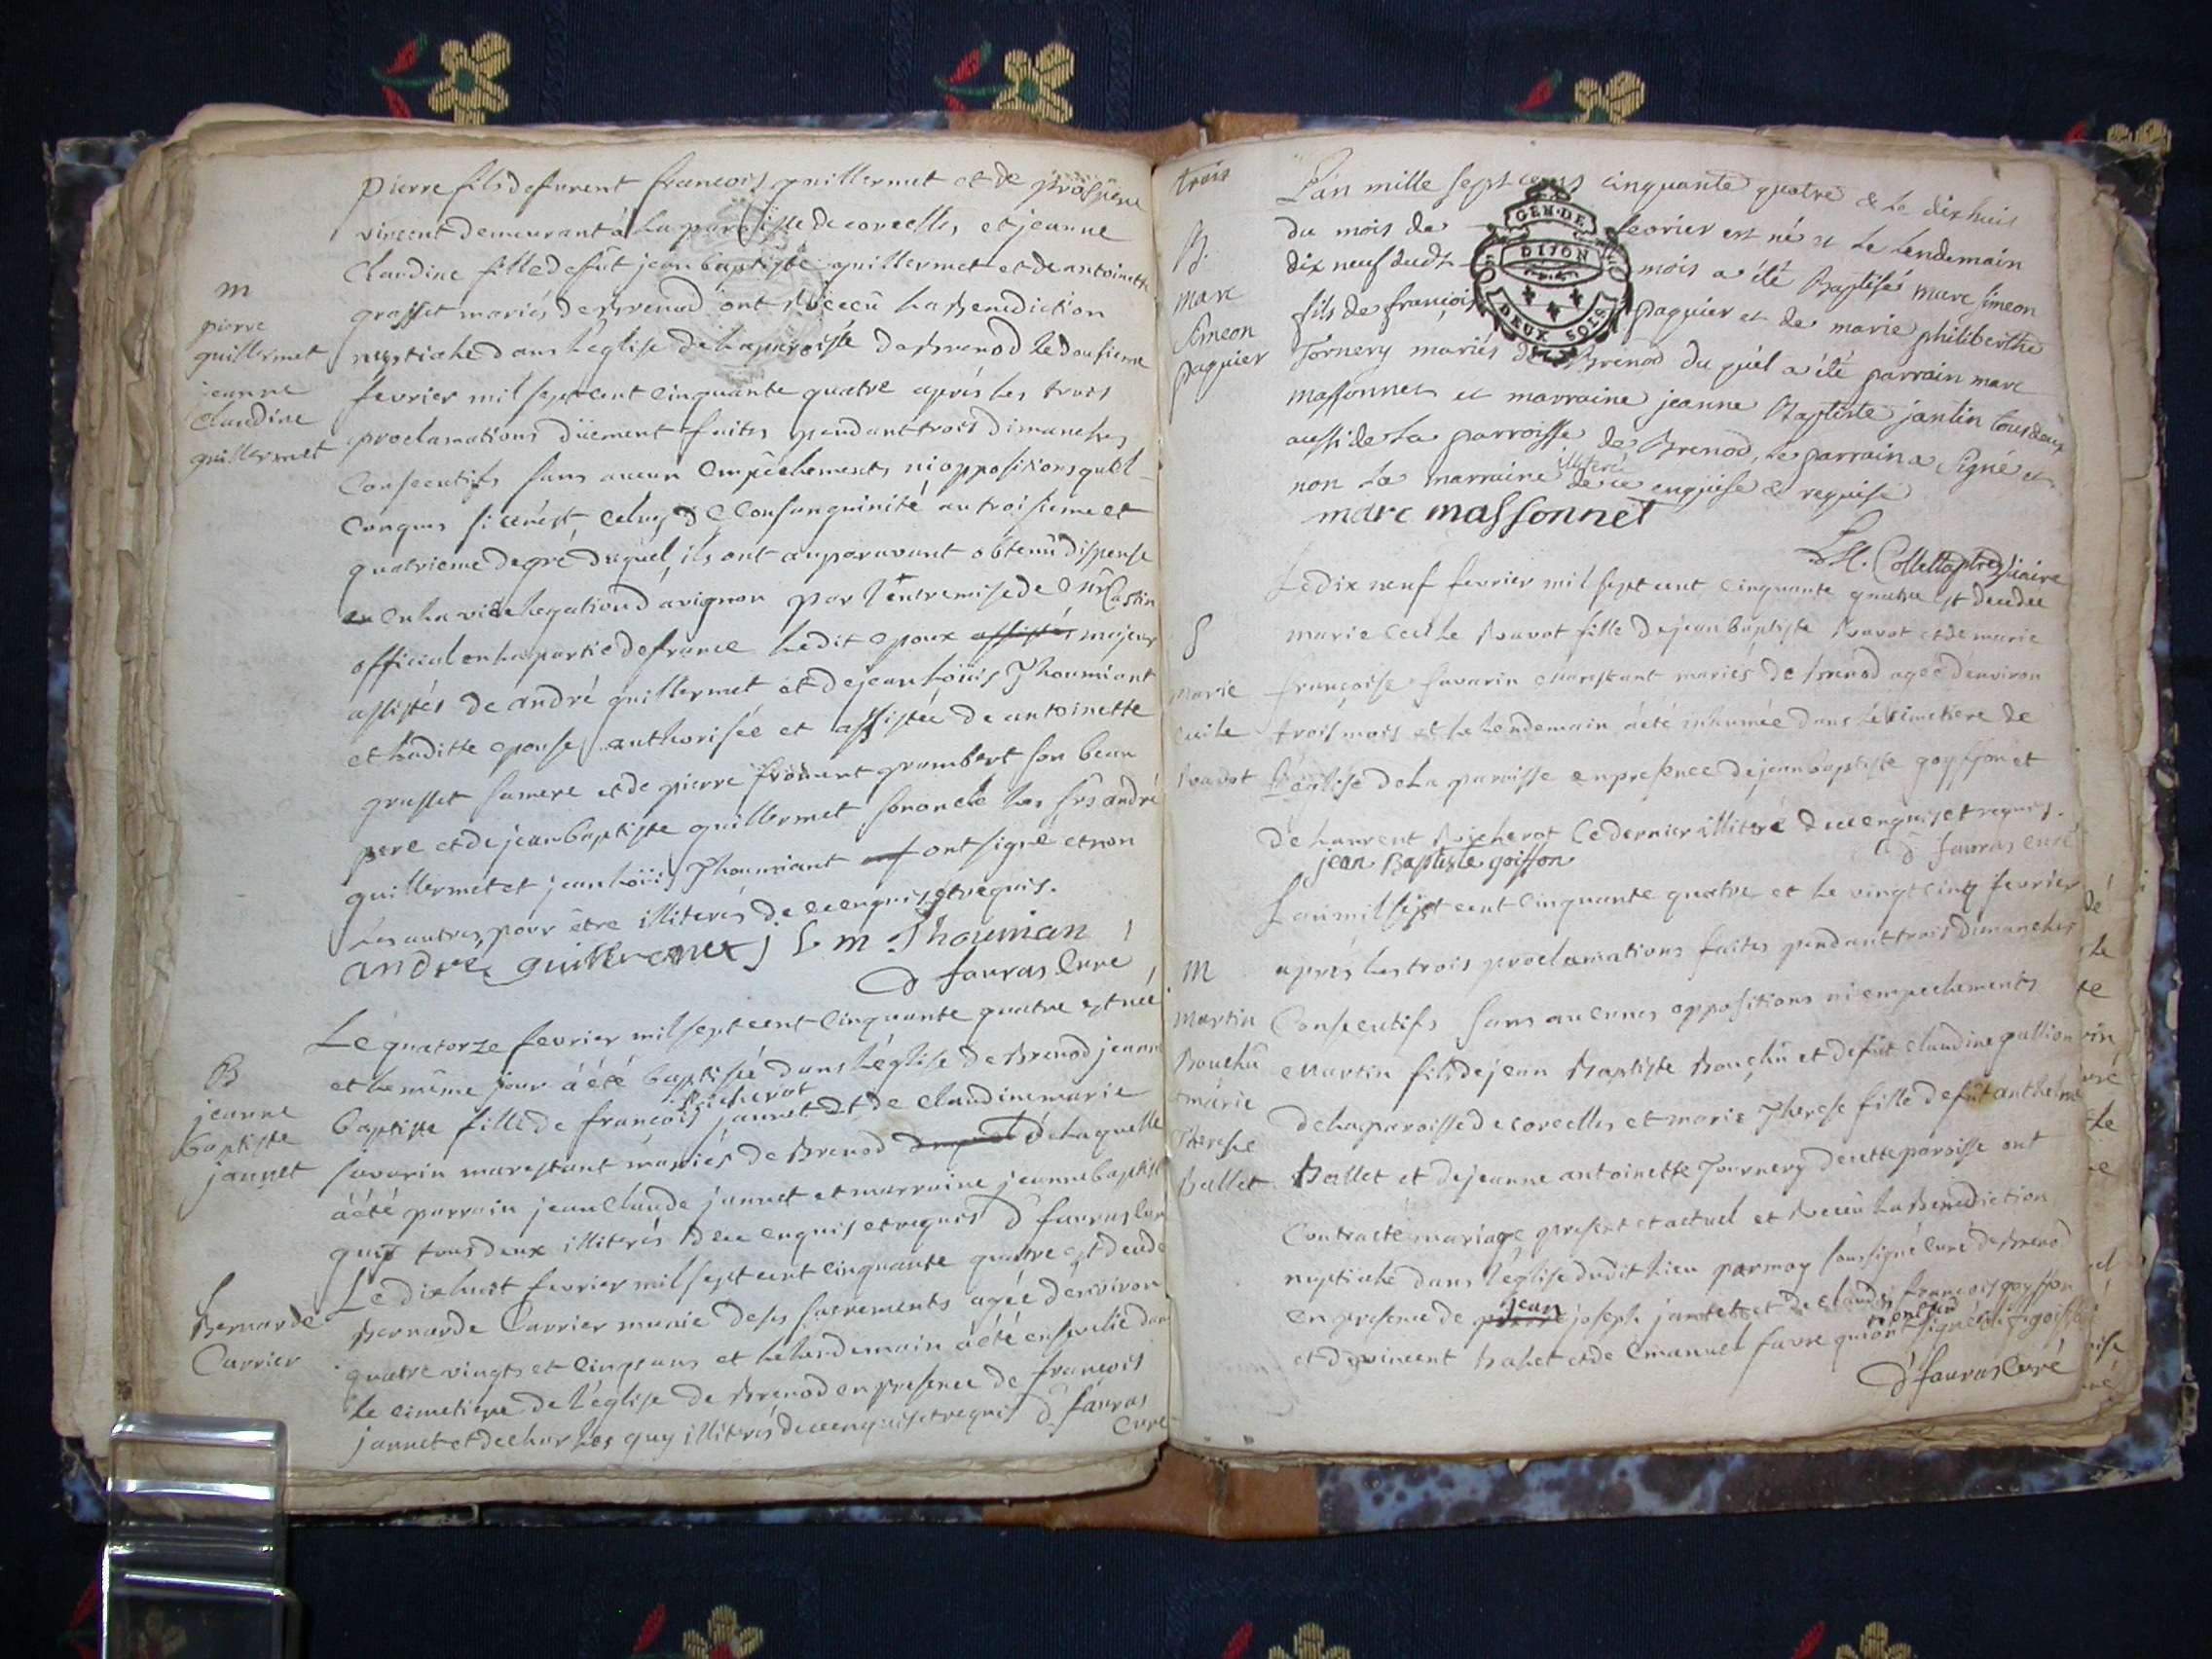 pierre fils de furent francois guillermet et de prospere
vincent demeurant à la paroisse de corcelles, et jeanne
Claudine fille de fût jean baptiste guillermet et de antoinette
grasset mariés de Brenod ont Receü la Benediction
m
pierre
guillermet
jeanne
Claudine
guillermet
nuptiale dans l'eglise de la paroisse de Brenod le dousieme
fevrier mil sept cent cinquante quatre aprés les trois
proclamations düement faites pendant trois dimanches
Consecutifs sans aucun Empêchements ni oppositions quel-
conques si ce n'est celuy de Consanguinité au troisieme et
quatrieme degré duquel, ils ont auparavant obtenû dispense
en la vice legation d'avignon par l'entremise de Mr Castin
official en la partie de france ledit epoux assistés majeur
assistés de andré guillermet et de jean loüis Thoumiant
et laditte epouse authorisée et assistée de antoinette
grasset sa mere et de pierre froment grambert son beau
pere et de jean baptiste guillermet son oncle les srs andré
guillermet et jean loüis Thoumiant ont signé et non
les autres pour être illiterés de ce enquis et requis.
andré guillermet j L m Thoumian
D favras Curé
B
jeanne
baptiste
jannet
Le quatorze fevrier mil sept cent Cinquante quatre est née
et le même jour à été baptisée dans l'église de Brenod jeanne
Richerot
baptiste fille de francois jannet et de claudine marie
savarin marestant mariés de Brenod duquel de laquelle
à été parrain jean Claude jannet et marraine jeanne baptiste
guy tous deux illiterés de ce enquis et requis D favras Curé
S
Bernarde
Carrier
Le dix huit fevrier mil sept cent cinquante quatre est decede
Bernarde Carrier munie de ses sacrements agée d'environ
quatre vingts et Cinq ans et le lendemain à été ensevelie dans
le cimetiere de l'église de Brenod en presence de francois
jannet et de charles guy illiterés de ce enquis et requis D favras
Curé
trois
B.
marc
Simeon
paquier
L'an mille sept cens cinquante quatre & le dix huit
du mois de fevrier est né et le lendemain
dix neuf dudt mois a été Baptisé marc simeon
fils de françois paquier et de marie philiberthe
Tornery mariés de Brenod du quel a été parrain marc
massonnet et marraine jeanne Baptiste jantin tous deux
aussi de la parroisse de Brenod, le parrain a signé et
illiteré
non la marraine de ce enquise & requise
GEN. DE
DIJON
DEUX SOLS
marc massonnet
Collet ptre Vicaire
S
marie
cecile
Ravot
Le dix neuf fevrier mil sept cent cinquante quatre est decedée
marie Cecile Ravot fille de jean baptiste Ravot et de marie
françoise savarin marestant mariés de Brenod agée d'environ
trois mois et le lendemain à été inhumée dans le cimetiere de
l'église de la paroisse en presence de jean baptiste goyffon et
de laurent Richerot Ce dernier illiteré de ce enquis et requis.
jean Baptiste goiffon
D favras curé
m
martin
Bouchû
marie
Therese
Ballet
L'an mil sept cent Cinquante quatre et le vingt cinq fevrier
aprés les trois proclamations faites pendant trois dimanches
Consecutifs sans aucunes oppositions ni empechements
martin fils de jean Baptiste Bouchû et de fût claudine gallion
de la paroisse de corcelles et marie Therese fille de fût anthelme
Ballet et de jeanne antoinette Tournery de cette paroisse ont
Contracté mariage present et actuel et Receü la Benediction
nuptiale dans l'église dudit lieu par moy soussigné Curé de Brenod
jean
en presence de pierre joseph jantet et de claude francois goyffon
et de vincent balet et de Emanuel favre qui ont signé
D favras Curé